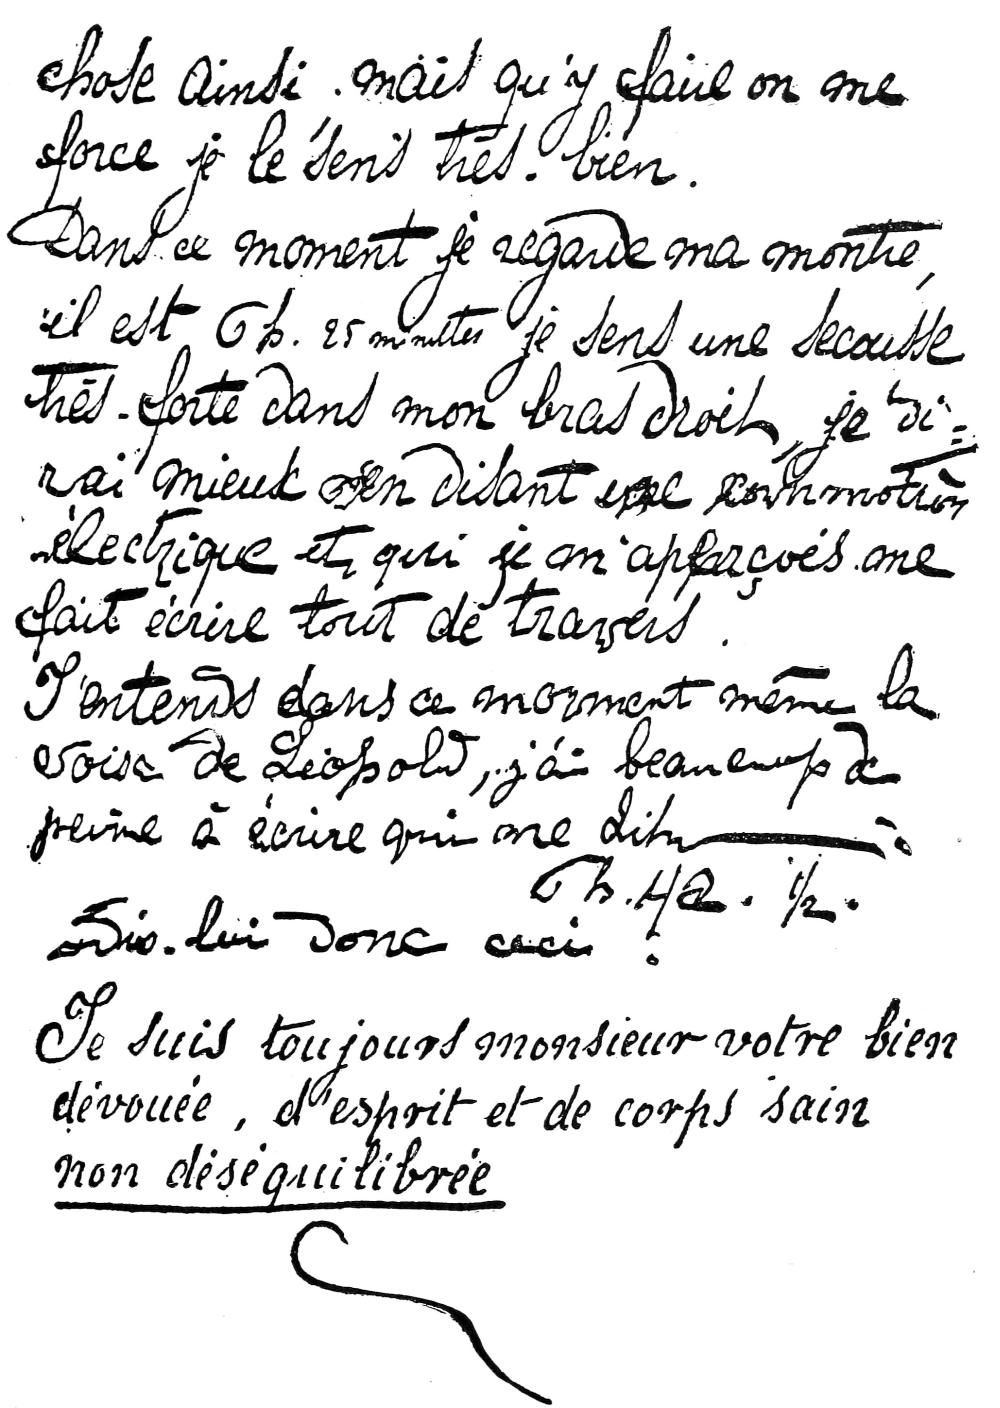 chose ainsi. mais qu'y faire on me
force je le sens très-bien.
Dans ce moment je regarde ma montre,
il est 6 h. 25 minutes je sens une secousse
très-forte dans mon bras droit, je di=
rai mieux en disant une commotion
électrique et, qui je m'aperçoés me
fait écrire tout de travers.
J'entends dans ce moment même la
voix de Léopold, j'ai beaucoup de
peine à écrire qui me dit :
6 h. 42. 1/2.
Dis-lui donc ceci :
Je suis toujours monsieur votre bien
dévouée, d'esprit et de corps sain
non déséquilibrée